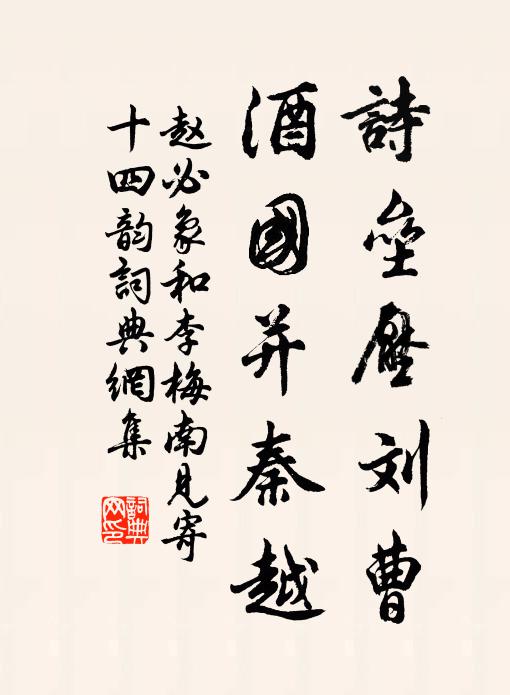 詩壘壓刘曹
酒國并秦越
赵必象和李梅南見寄
十四韵詞典網集
詞典网印